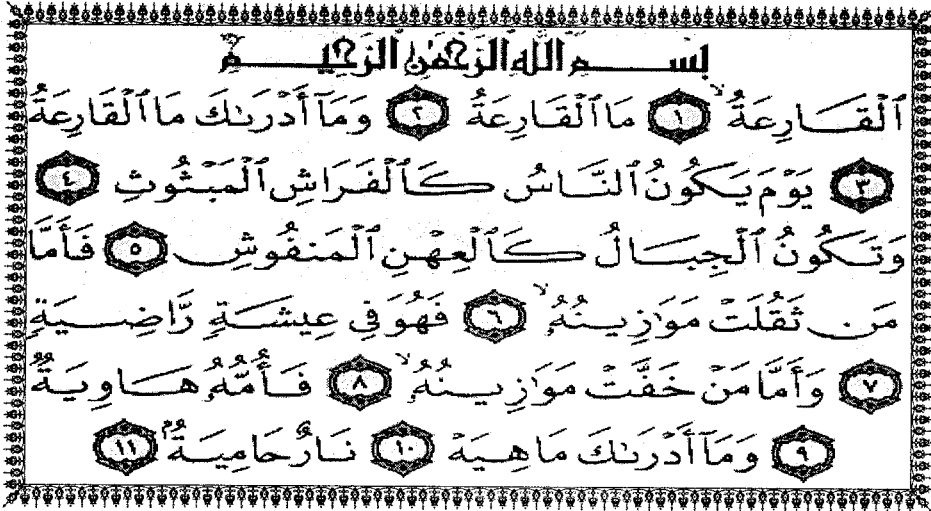 بِسْمِ ٱللَّهِ ٱلرَّحْمَٰنِ ٱلرَّحِيمِ
ٱلْقَارِعَةُ ۙ ١ مَا ٱلْقَارِعَةُ ٢ وَمَآ أَدْرَىٰكَ مَا ٱلْقَارِعَةُ
٣ يَوْمَ يَكُونُ ٱلنَّاسُ كَٱلْفَرَاشِ ٱلْمَبْثُوثِ ٤
وَتَكُونُ ٱلْجِبَالُ كَٱلْعِهْنِ ٱلْمَنفُوشِ ٥ فَأَمَّا
مَن ثَقُلَتْ مَوَٰزِينُهُۥ ۙ ٦ فَهُوَ فِى عِيشَةٍ رَّاضِيَةٍ
٧ وَأَمَّا مَنْ خَفَّتْ مَوَٰزِينُهُۥ ۙ ٨ فَأُمُّهُۥ هَاوِيَةٌ
٩ وَمَآ أَدْرَىٰكَ مَا هِيَهْ ١٠ نَارٌ حَامِيَةٌۢ ١١